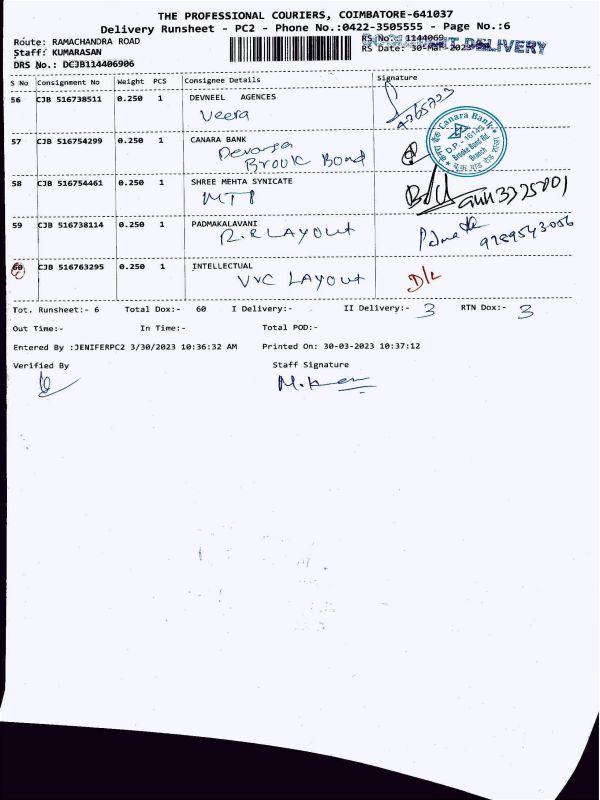 THE PROFESSIONAL COURIERS, COIMBATORE-641037
Delivery Runsheet - PC2 - Phone No.:0422-3505555 - Page No.:6
Route: RAMACHANDRA ROAD
Staff: KUMARASAN
DRS No.: DCJB114406906
RS No.: 1144069
RS Date: 30-Mar-2023
DELIVERY
S No Consignment No Weight PCS Consignee Details Signature
56 CJB 516738511 0.250 1 DEVNEEL AGENCES
Veera
57 CJB 516754299 0.250 1 CANARA BANK
Brook Bond
Canara Bank
D.P.: 16125
Brooke Bond Rd.
Branch
58 CJB 516754461 0.250 1 SHREE MEHTA SYNICATE
MTP
59 CJB 516738114 0.250 1 PADMAKALAVANI
R.R LAYOUT
9789543056
60 CJB 516763295 0.250 1 INTELLECTUAL
VVC LAYOUT D/L
Tot. Runsheet:- 6 Total Dox:- 60 I Delivery:- II Delivery:- 3 RTN Dox:- 3
Out Time:- In Time:- Total POD:-
Entered By :JENIFERPC2 3/30/2023 10:36:32 AM Printed On: 30-03-2023 10:37:12
Verified By Staff Signature